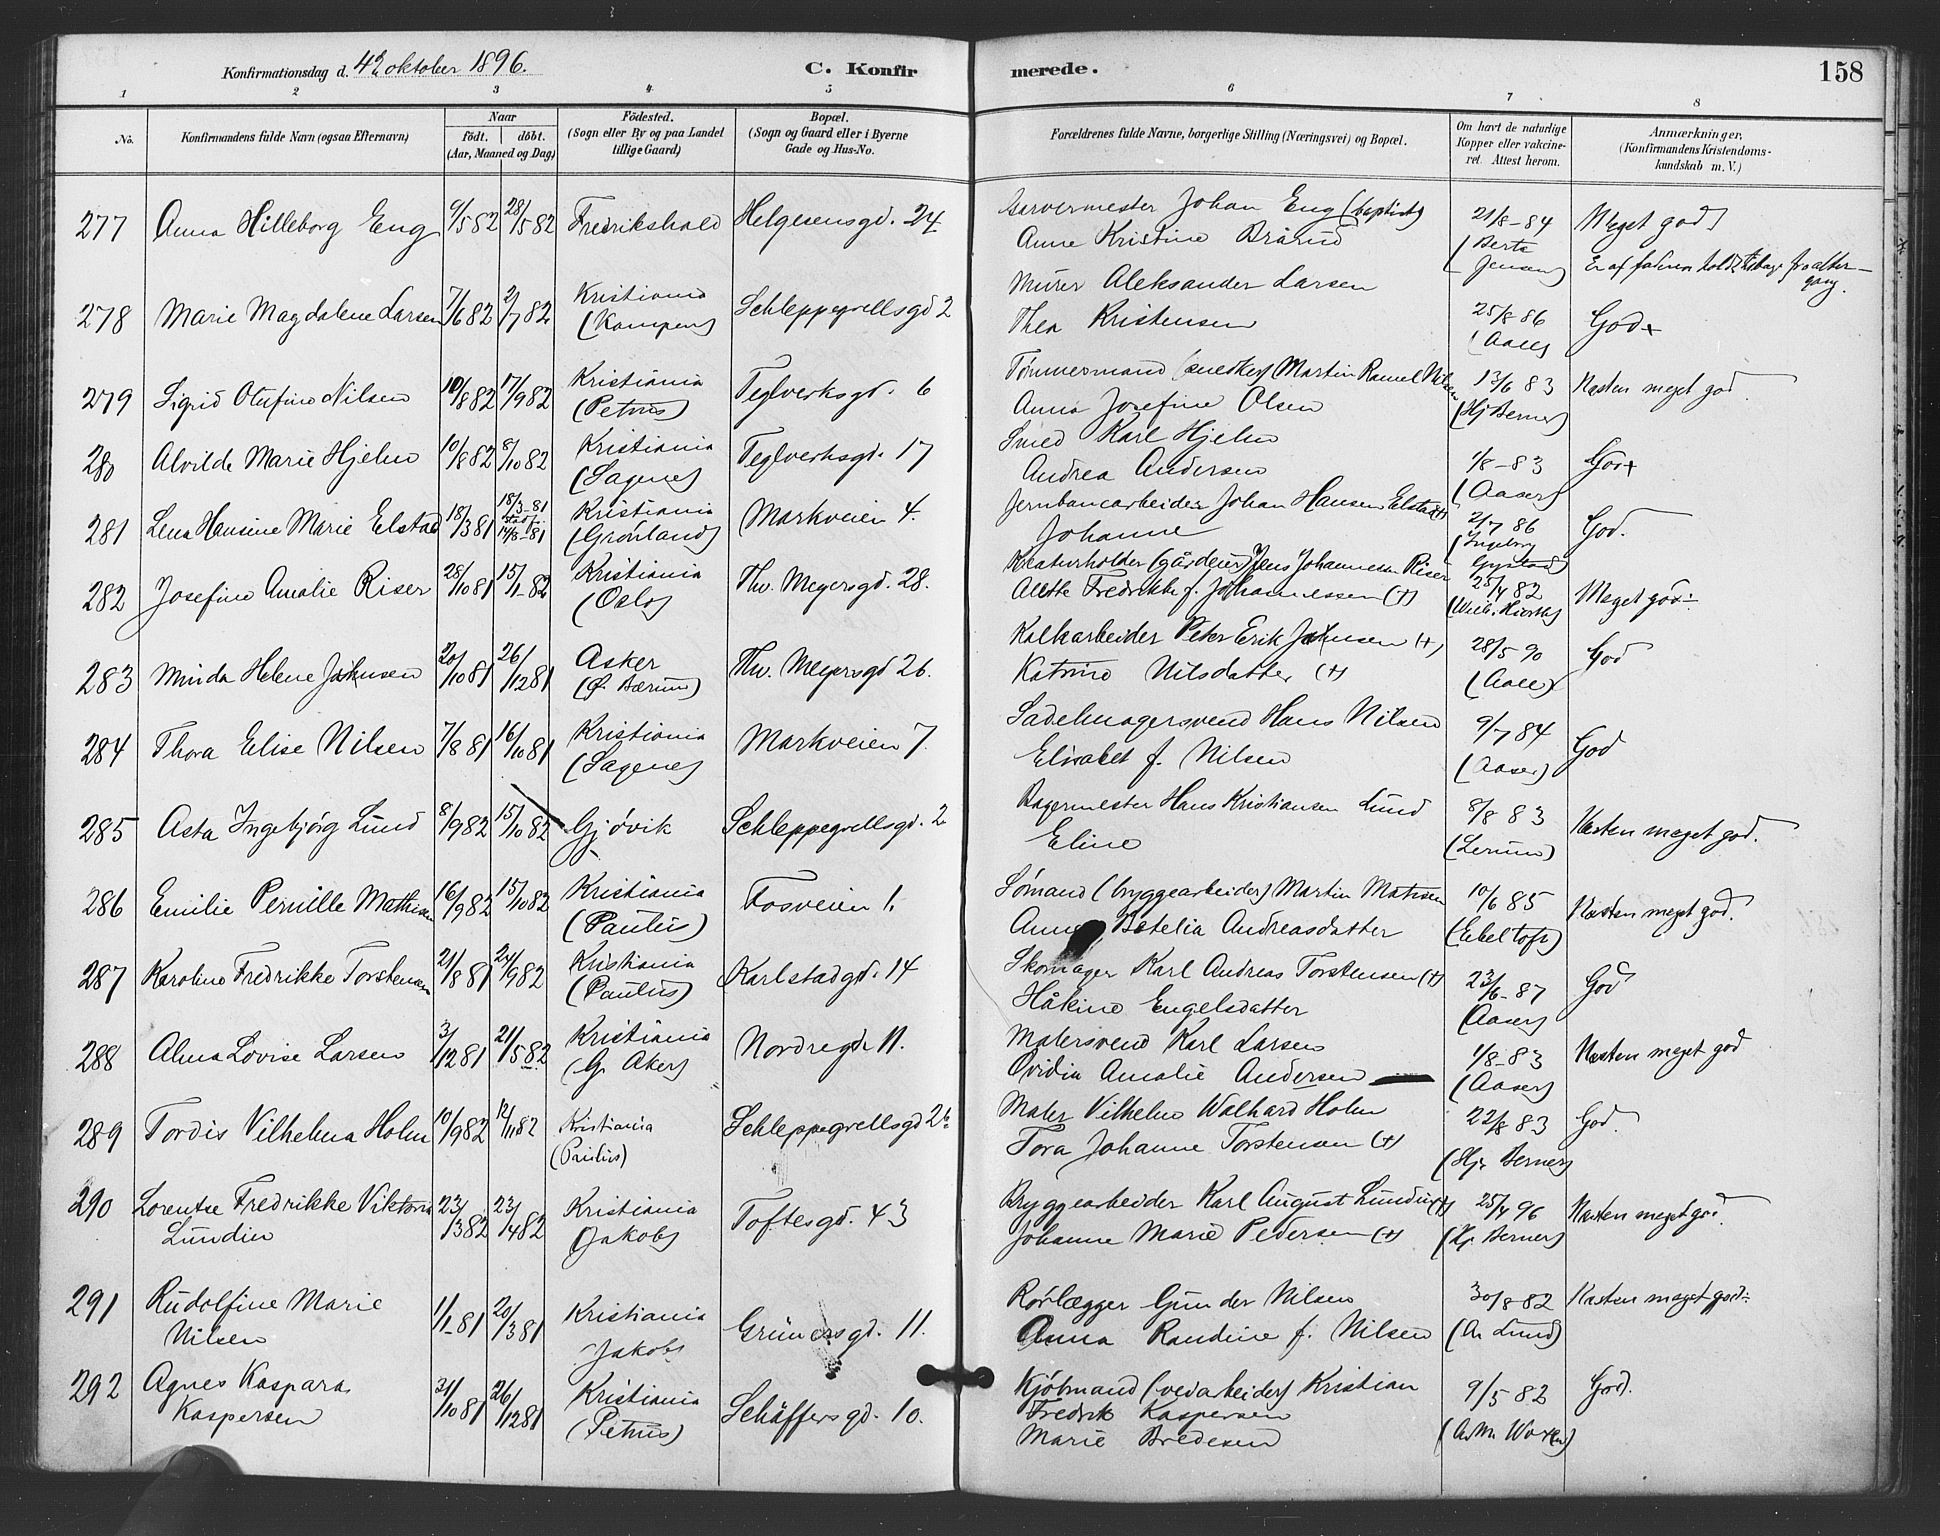 Konfirmationsdag d. 4de oktober 1896.
C. Konfirmerede.
158
1 2 3 4 5 6 7 8
No.
Konfirmandens fulde Navn (ogsaa Efternavn)
Naar
født. døbt.
(Aar, Maaned og Dag)
Fødested.
(Sogn eller By og paa Landet
tillige Gaard)
Bopæl.
(Sogn og Gaard eller i Byerne
Gade og Hus-No.
Forældrenes fulde Navne, borgerlige Stilling (Næringsvei) og Bopæl.
Om havt de naturlige
Kopper eller vakcine-
ret. Attest herom.
Anmærkninger,
(Konfirmandens Kristendoms-
kundskab m. V.)
277 Anna Hilleborg Eng 9/5 82 28/5 82 Fredrikshald Helgesensgd. 24
Garvermester Johan Eng (baptist)
Anne Kristine Brårud
21/8-84
(Berte
Jensen)
Meget god
Er af faderen holdt tilbage fra alter-
gang.
278 Marie Magdalene Larsen 7/6 82 2/7 82 Kristiania
(Kampen) Schleppegrellsgd 2
Murer Aleksander Larsen
Thea Kristensen
25/8 86
(Aall)
God
279 Sigrid Olufine Nilsen 10/8 82 17/9 82 Kristiania
(Petrus) Teglverksgd. 6
Tømmermand (snedker) Martin Ramel Nilsen
Anna Josefine Olsen
13/6 83
(Hj. Berner)
Næsten meget god
280 Alvilde Marie Hjelm 10/8 82 8/10 82 Kristiania
(Sagene) Teglverksgd. 17
Smed Karl Hjelm
Andrea Andersen
1/8-83
(Aaser)
God
281 Lena Hansine Marie Elstad 18/3 81 18/3-81
stadf.
14/8-81 Kristiania
(Grønland) Markveien 4.
Jernbanearbeider Johan Hansen Elstad (+)
Johanne
2/7 86
(Ingeborg
God.
282 Josefine Amalie Riser 28/10 81 15/1-82 Kristiania
(Oslo) Thv. Meyersgd. 28.
Kreaturholder (gårdeier) Jens Johannesen Riser
Alette Fredrikke f. Johannessen (+)
25/4 82
Meget god
283 Minda Helene Johnsen 20/10 81 26/12 81 Asker
(Ø. Bærum) Thv. Meyersgd 26.
Kalkarbeider Peter Erik Johnsen (+)
Katrine Nilsdatter (+)
28/5 90
(Aall)
God
284 Thora Elise Nilsen 7/8 81 16/10 81 Kristiania
(Sagene) Markveien 7.
Sadelmagersvend Hans Nilsen
Elisabet f. Nilsen
9/7 84
(Aaser)
God
285 Asta Ingebjørg Lund 8/9 82 15/10 82 Gjøvik Schleppegrellsgd. 2
Bagermester Hans Kristiansen Lund
Eline
8/8 83
(Lerum)
Næsten meget god.
286 Emilie Pernille Mathisen 16/9 82 15/10 82 Kristiania
(Paulus) Fosveien 1.
Sømand (bryggearbeider) Martin Matisen
Anne Betelia Andreasdatter
10/6 85
(Ebeltoft)
Næsten meget god.
287 Karoline Fredrikke Torstensen 21/8 81 24/9 82 Kristiania
(Paulus) Karlstadgd. 14
Skomager Karl Andreas Torstensen (+)
Håkine Engelsdatter
23/6-87
(Aaser)
God
288 Alma Lovise Larsen 3/12 81 21/5 82 Kristiania
(G. Aker) Nordregd. 11.
Malersvend Karl Larsen
Ovidia Amalie Andersen
1/8-83
(Aaser)
Næsten meget god
289 Tordis Vilhelma Holm 10/9 82 12/11 82 Kristiania
(Paulus) Schleppegrellsgd 26
Maler Vilhelm Walhard Holm
Tora Johanne Torstensen (+)
22/8 83
(Hj. Berner)
God.
290 Lorentse Fredrikke Viktoria
Lundin 23/3 82 23/4 82 Kristiania
(Jakob) Toftesgd. 43
Bryggearbeider Karl August Lundin (+)
Johanne Marie Pedersen (+)
25/4 96
(Hj. Berner)
Næsten meget god.
291 Rudolfine Marie
Nilsen 1/1-81 20/3 81 Kristiania
Jakob Grünersgd. 11.
Rørlægger Gunder Nilsen
Anna Randine f. Nilsen
30/8-82
(A. Lund)
Næsten meget god.
292 Agnes Kaspara
Kaspersen 31/10 81 26/12 81 Kristiania
(Petrus) Schäffersgd. 10.
Kjøbmand (veiarbeider) Kristian
Fredrik Kaspersen
Marie Bredesen
9/5 82
God.